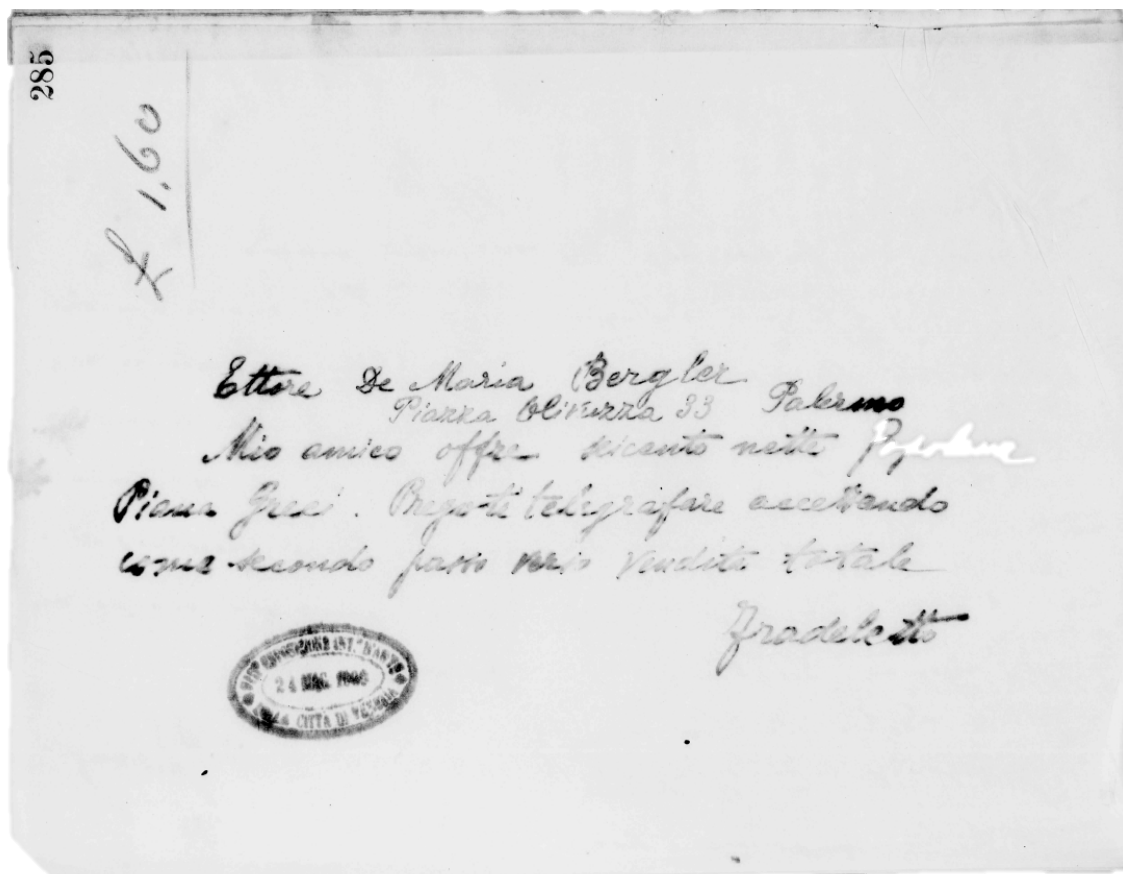 285
£ 1.60
Ettore De Maria Bergler
Piazza Olivuzza 33 Palermo
Mio amico offre seicento nette
Piana Greci. Pregoti telegrafare accettando
come secondo passo verso vendita totale
Fradeletto
ESPOSIZIONE INT. D'ARTE
24 MAG.
DELLA CITTÀ DI VENEZIA